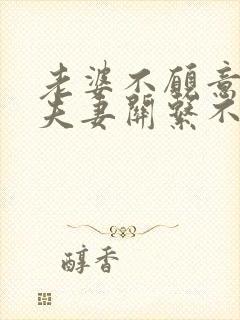 老婆不願意
夫妻關繫不
醇香